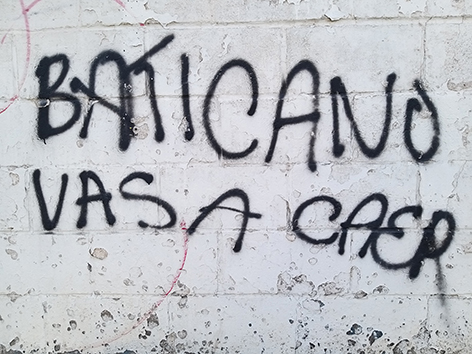 BATICANO
VAS A CAER